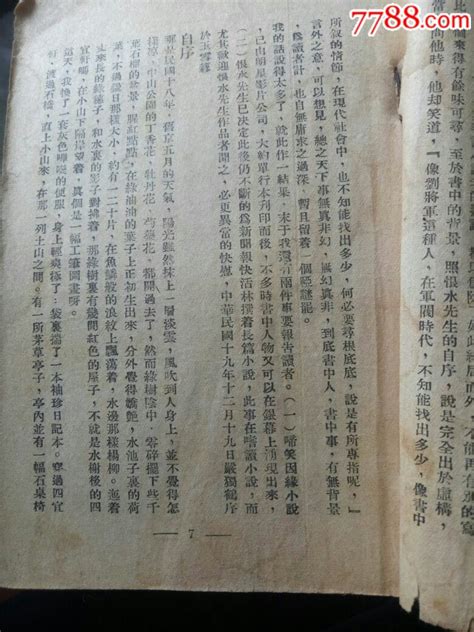 7788.com
得有餘味可尋，至於書中的背景，照恨水先生的自序，說是完全出於虛構，
當面問他時，他却笑道，『像劉將軍這種人，在軍閥時代，不知能找出多少，像書中
所敘的情節，在現代社會中，也不知能找出多少，何必要尋根究底，說是有所專指呢，』
言外之意，可以想見，總之天下事無真非幻，無幻非真，到底書中人，書中事，有無背景
，爲讀者計，也自無庸求之過深，暫且留着一個啞謎罷。
我的話說得太多了，就此作一結束，末了我還有兩件事要報告讀者。（一）啼笑因緣小說
，已由明星影片公司，大約單行本刊印而後，不多時書中人物又可以在銀幕上湧現出來，
（二）恨水先生已決定此後仍不斷的爲新聞報快活林撰著長篇小說，此事在嗜讀小說，而
尤其歡迎恨水先生作品者聞之，必更異常的快慰，中華民國十九年十二月十九日嚴獨鶴序
於玉雪簃
自序
那是民國十八年，舊京五月的天氣，陽光雖然抹上一層淡雲，風吹到人身上，並不覺得怎
樣涼，中山公園的丁香花，牡丹花，芍藥花，都開過去了，然而綠樹蔭中，零碎擺下些千
葉石榴的盆景，猩紅點點，在綠油油的葉子上正初生出來，分外覺得嬌艷，水池子裏的荷
葉，不過碟子那樣大小，約有一二十片，在魚鱗般的浪紋上飄蕩着，水邊那樣楊柳，拖着
丈來長的綠穗子，和水裏的影子對拂着，那綠樹裏有幾間紅色的屋子，不就是水榭後的四
宜軒嗎，在小山下隔岸望着，真個是一幅工筆圖畫呀。
這天，我換了一套灰色嗶嘰的便服，身上輕爽極了：袋裏揣了一本袖珍日記本。穿過四宜
軒，渡過石橋，直上小山來，在那一列土山之間。有一所茅草亭子，亭內並有一幅石桌椅
— 7 —